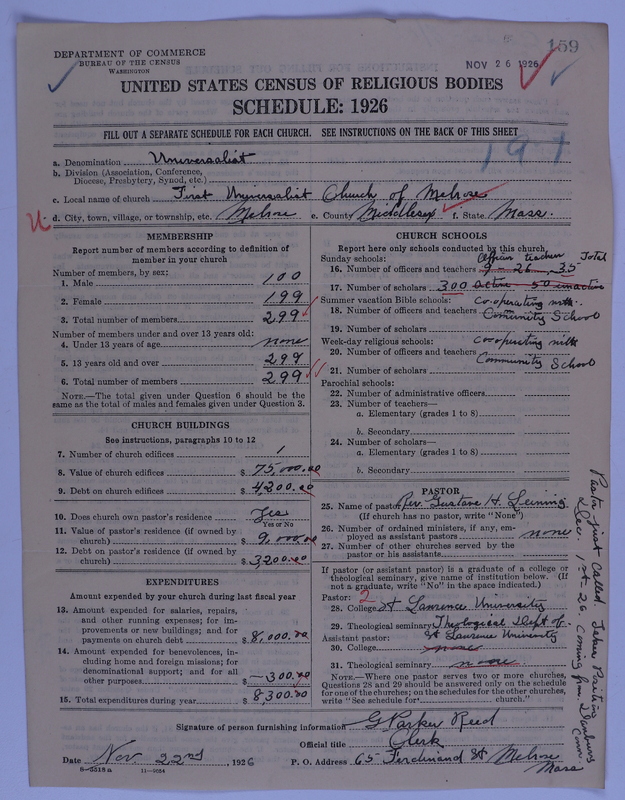 159
DEPARTMENT OF COMMERCE
BUREAU OF THE CENSUS
WASHINGTON
NOV 26 1926
UNITED STATES CENSUS OF RELIGIOUS BODIES
SCHEDULE: 1926
FILL OUT A SEPARATE SCHEDULE FOR EACH CHURCH. SEE INSTRUCTIONS ON THE BACK OF THIS SHEET
191
a. Denomination Universalist
b. Division (Association, Conference,
Diocese, Presbytery, Synod, etc.)
c. Local name of church First Universalist Church of Melrose
d. City, town, village, or township, etc. Melrose e. County Middlesex f. State Mass.
MEMBERSHIP
Report number of members according to definition of
member in your church
Number of members, by sex:
1. Male 100
2. Female 199
3. Total number of members 299
Number of members under and over 13 years old:
4. Under 13 years of age none
5. 13 years old and over 299
6. Total number of members 299
NOTE.—The total given under Question 6 should be
the same as the total of males and females given under Question 3.
CHURCH BUILDINGS
See instructions, paragraphs 10 to 12
7. Number of church edifices 1
8. Value of church edifices $ 75,000.00
9. Debt on church edifices $ 4200.00
10. Does church own pastor's residence Yes
Yes or No
11. Value of pastor's residence (if owned by
church) $ 9,000.00
12. Debt on pastor's residence (if owned by
church) $ 3200.00
EXPENDITURES
Amount expended by your church during last fiscal year
13. Amount expended for salaries, repairs,
and other running expenses; for im-
provements or new buildings; and for
payments on church debt $ 8,000.00
14. Amount expended for benevolences, in-
cluding home and foreign missions; for
denominational support; and for all
other purposes $ 300.00
15. Total expenditures during year $ 8300.00
CHURCH SCHOOLS
Report here only schools conducted by this church
Sunday schools: Officers teachers Total
16. Number of officers and teachers 9 - 26 35
17. Number of scholars 300 active 50 inactive
Summer vacation Bible schools: Co-operating with
18. Number of officers and teachers Comunity School
19. Number of scholars
Week-day religious schools: cooperating with
20. Number of officers and teachers Community School
21. Number of scholars
Parochial schools:
22. Number of administrative officers
23. Number of teachers—
a. Elementary (grades 1 to 8)
b. Secondary
24. Number of scholars—
a. Elementary (grades 1 to 8)
b. Secondary
PASTOR
25. Name of pastor Rev Gustave H. Leining
(If church has no pastor, write "None")
26. Number of ordained ministers, if any, em-
ployed as assistant pastors none
27. Number of other churches served by the
pastor or his assistants
If pastor (or assistant pastor) is a graduate of a college or
theological seminary, give name of institution below. (If
not a graduate, write "No" in the space indicated.)
Pastor: 2
28. College St Lawrence University
29. Theological seminary Theological Dept of
Assistant pastor: St Lawrence University
30. College none
31. Theological seminary none
NOTE.—Where one pastor serves two or more churches,
Questions 28 and 29 should be answered only on the schedule
for one of the churches; on the schedules for the other churches,
write "See schedule for church."
Pastor just called. Takes Position
Dec. 1st - 26 Coming from Danbury
Conn.
Signature of person furnishing information G Parker Reed
Official title Clerk
Date Nov. 22nd, 1926 P. O. Address 65 Ferdinand St Melrose
Mass
8-5518a 11-9084